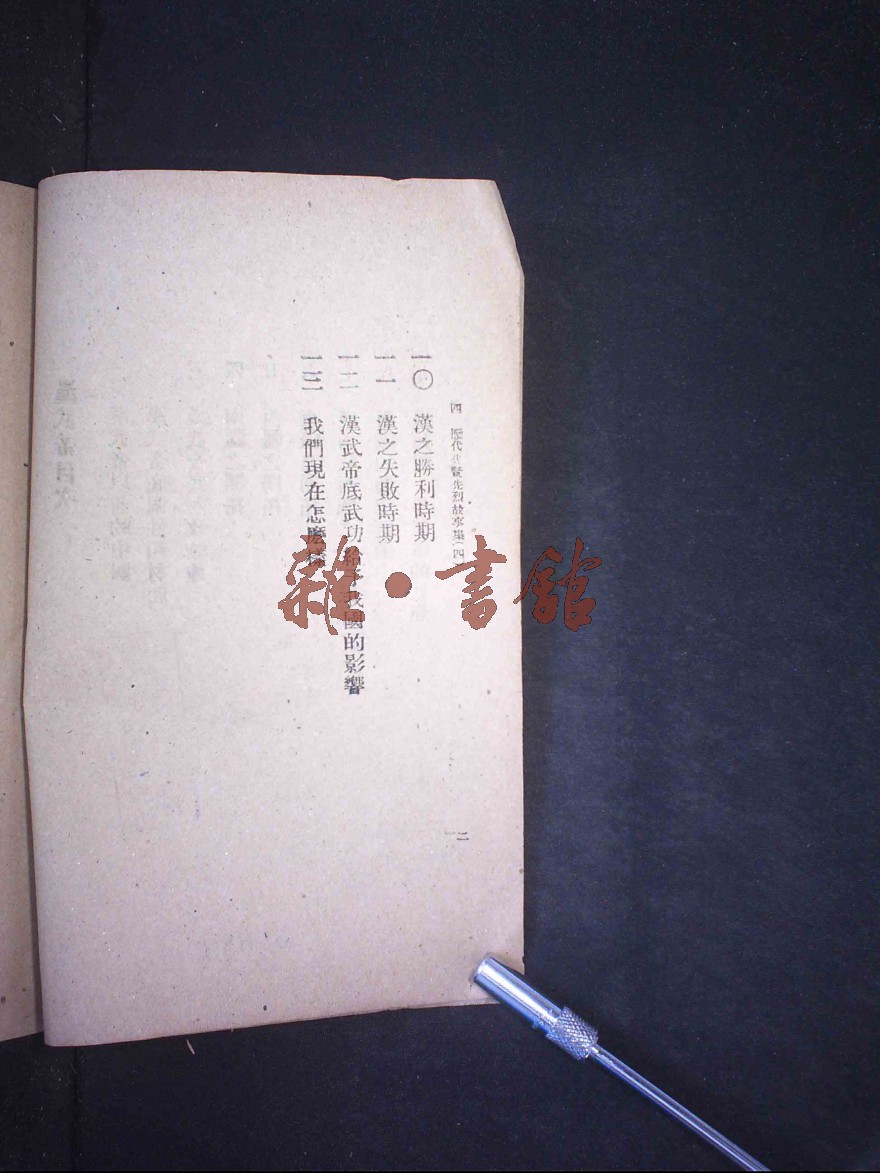 四 歷代先賢先烈故事集(四
一〇 漢之勝利時期
一一 漢之失敗時期
一二 漢武帝底武功給予我國的影響
一三 我們現在怎麼樣
二
雜·書館
漢武帝目次